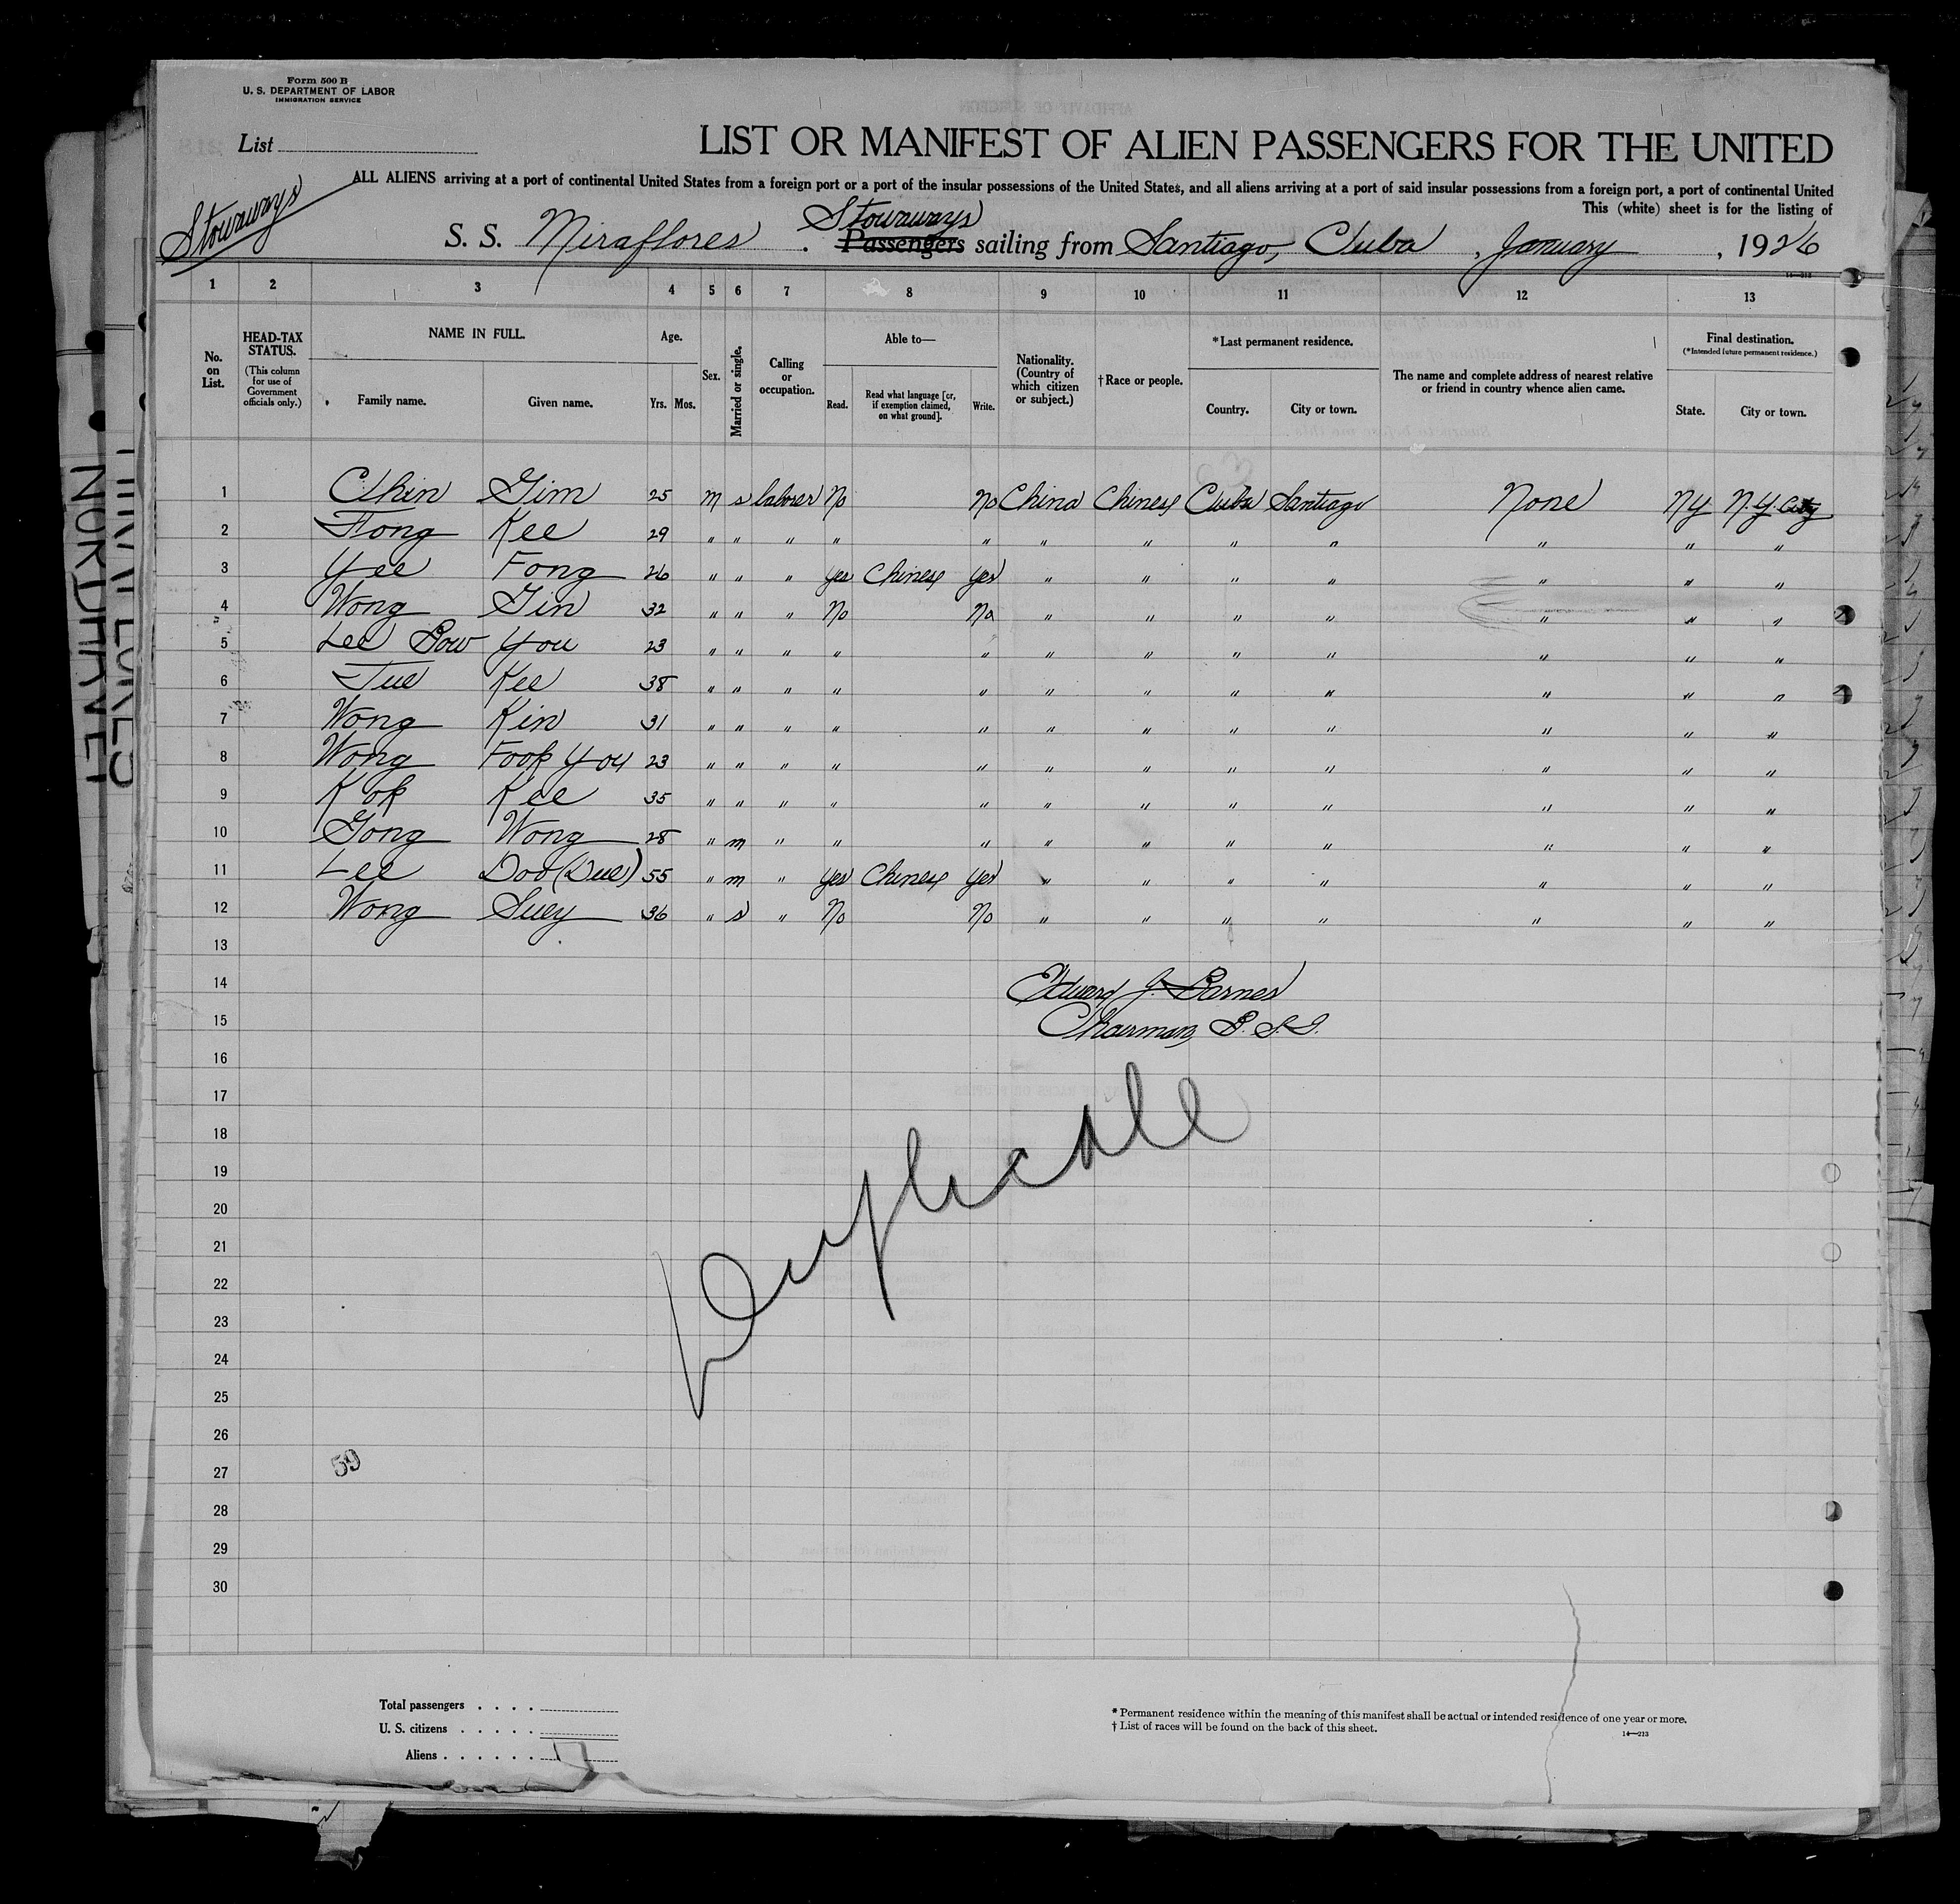 Form 500 B
U. S. DEPARTMENT OF LABOR
IMMIGRATION SERVICE
List
LIST OR MANIFEST OF ALIEN PASSENGERS FOR THE UNITED
ALL ALIENS arriving at a port of continental United States from a foreign port or a port of the insular possessions of the United States, and all aliens arriving at a port of said insular possessions from a foreign port, a port of continental United
This (white) sheet is for the listing of
Stowaways
Stowaways
S. S. Miraflores . Passengers sailing from Santiago, Cuba , January , 1926
14-213
1 2 3 4 5 6 7 8 9 10 11 12 13
No. on List.
HEAD-TAX STATUS.
(This column for use of Government officials only.)
NAME IN FULL.
Family name. Given name.
Age.
Yrs. Mos.
Sex.
Married or single.
Calling or occupation.
Able to—
Read. Read what language [or, if exemption claimed, on what ground]. Write.
Nationality. (Country of which citizen or subject.)
†Race or people.
*Last permanent residence.
Country. City or town.
The name and complete address of nearest relative or friend in country whence alien came.
Final destination.
(*Intended future permanent residence.)
State. City or town.
1 Chin Gim 25 m s laborer No No China Chinese Cuba Santiago None NY N.Y. City
2 Fong Kee 29 " " " " " " " " " " " "
3 Yee Fong 26 " " " yes Chinese yes " " " " " " "
4 Wong Gin 32 " " " No No " " " " " " "
5 Lee Bow You 23 " " " " " " " " " " " "
6 Tue Kee 38 " " " " " " " " " " " "
7 Wong Kin 31 " " " " " " " " " " " "
8 Wong Fook You 23 " " " " " " " " " " " "
9 Kok Kee 35 " " " " " " " " " " " "
10 Gong Wong 28 " m " " " " " " " " " "
11 Lee Doo (Due) 55 " m " yes Chinese yes " " " " " " "
12 Wong Suey 36 " s " No No " " " " " " "
13
14 Edward J. Barnes
15 Chairman, B.S.I.
16
17
18
19
20
21
22
23
24
25
26
27
28
29
30
Duplicate
59
Total passengers . . . .
U. S. citizens . . . . .
Aliens . . . . . .
* Permanent residence within the meaning of this manifest shall be actual or intended residence of one year or more.
† List of races will be found on the back of this sheet.
14—213